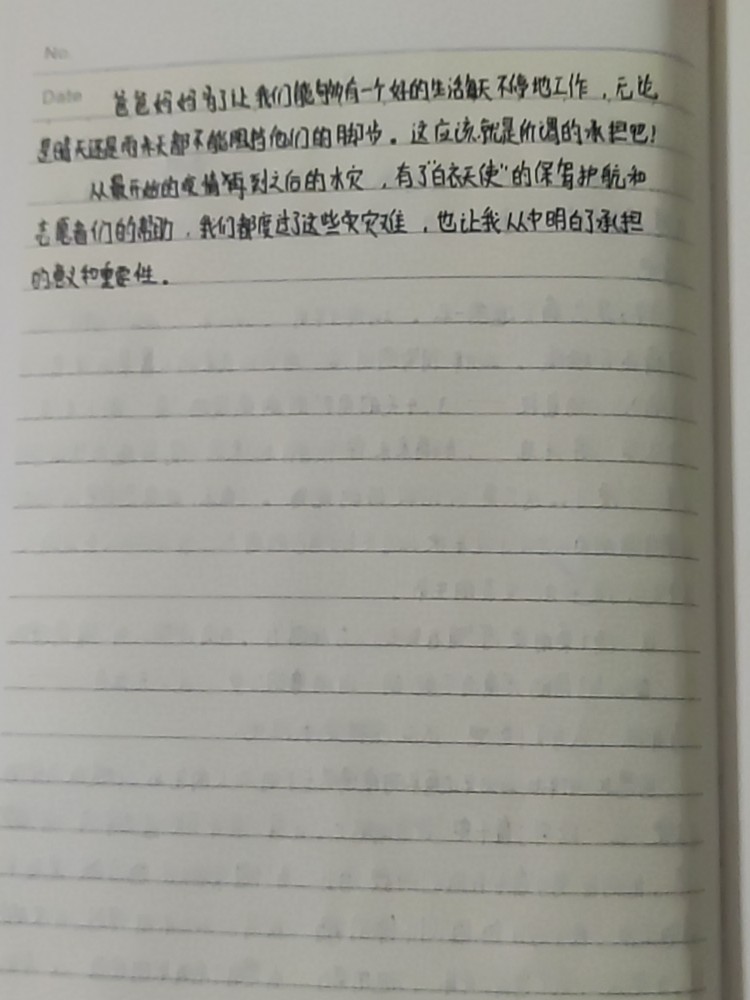 No.
Date
爸爸妈妈为了让我们能够拥有一个好的生活每天不停地工作，无论
是晴天还是雨天都不能阻挡他们的脚步。这应该就是所谓的承担吧！
从最开始的疫情再到之后的水灾，有了"白衣天使"的保驾护航和
志愿者们的帮助，我们都度过了这些灾难，也让我从中明白了承担
的意义和重要性。